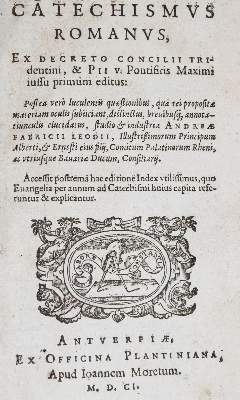 CATECHISMVS
ROMANVS,
EX DECRETO CONCILII TRI-
dentini, & PII V. Pontificis Maximi
iussu primum editus:
Postea verò luculentis quæstionibus, quæ rei propositæ
materiam oculis subijciant, distinctus, breuibusq́; annota-
tiunculis elucidatus, studio & industria ANDREÆ
FABRICII LEODII, Illustrissimorum Principum
Alberti, & Ernesti eius filij, Comitum Palatinorum Rheni,
ac vtriusque Bauariæ Ducum, Consiliarij.
Accessit postremà hac editione Index vtilissimus, quo
Euangelia per annum ad Catechismi huius capita refe-
runtur & explicantur.
ANTVERPIÆ,
EX OFFICINA PLANTINIANA,
Apud Ioannem Moretum.
M. D. CI.